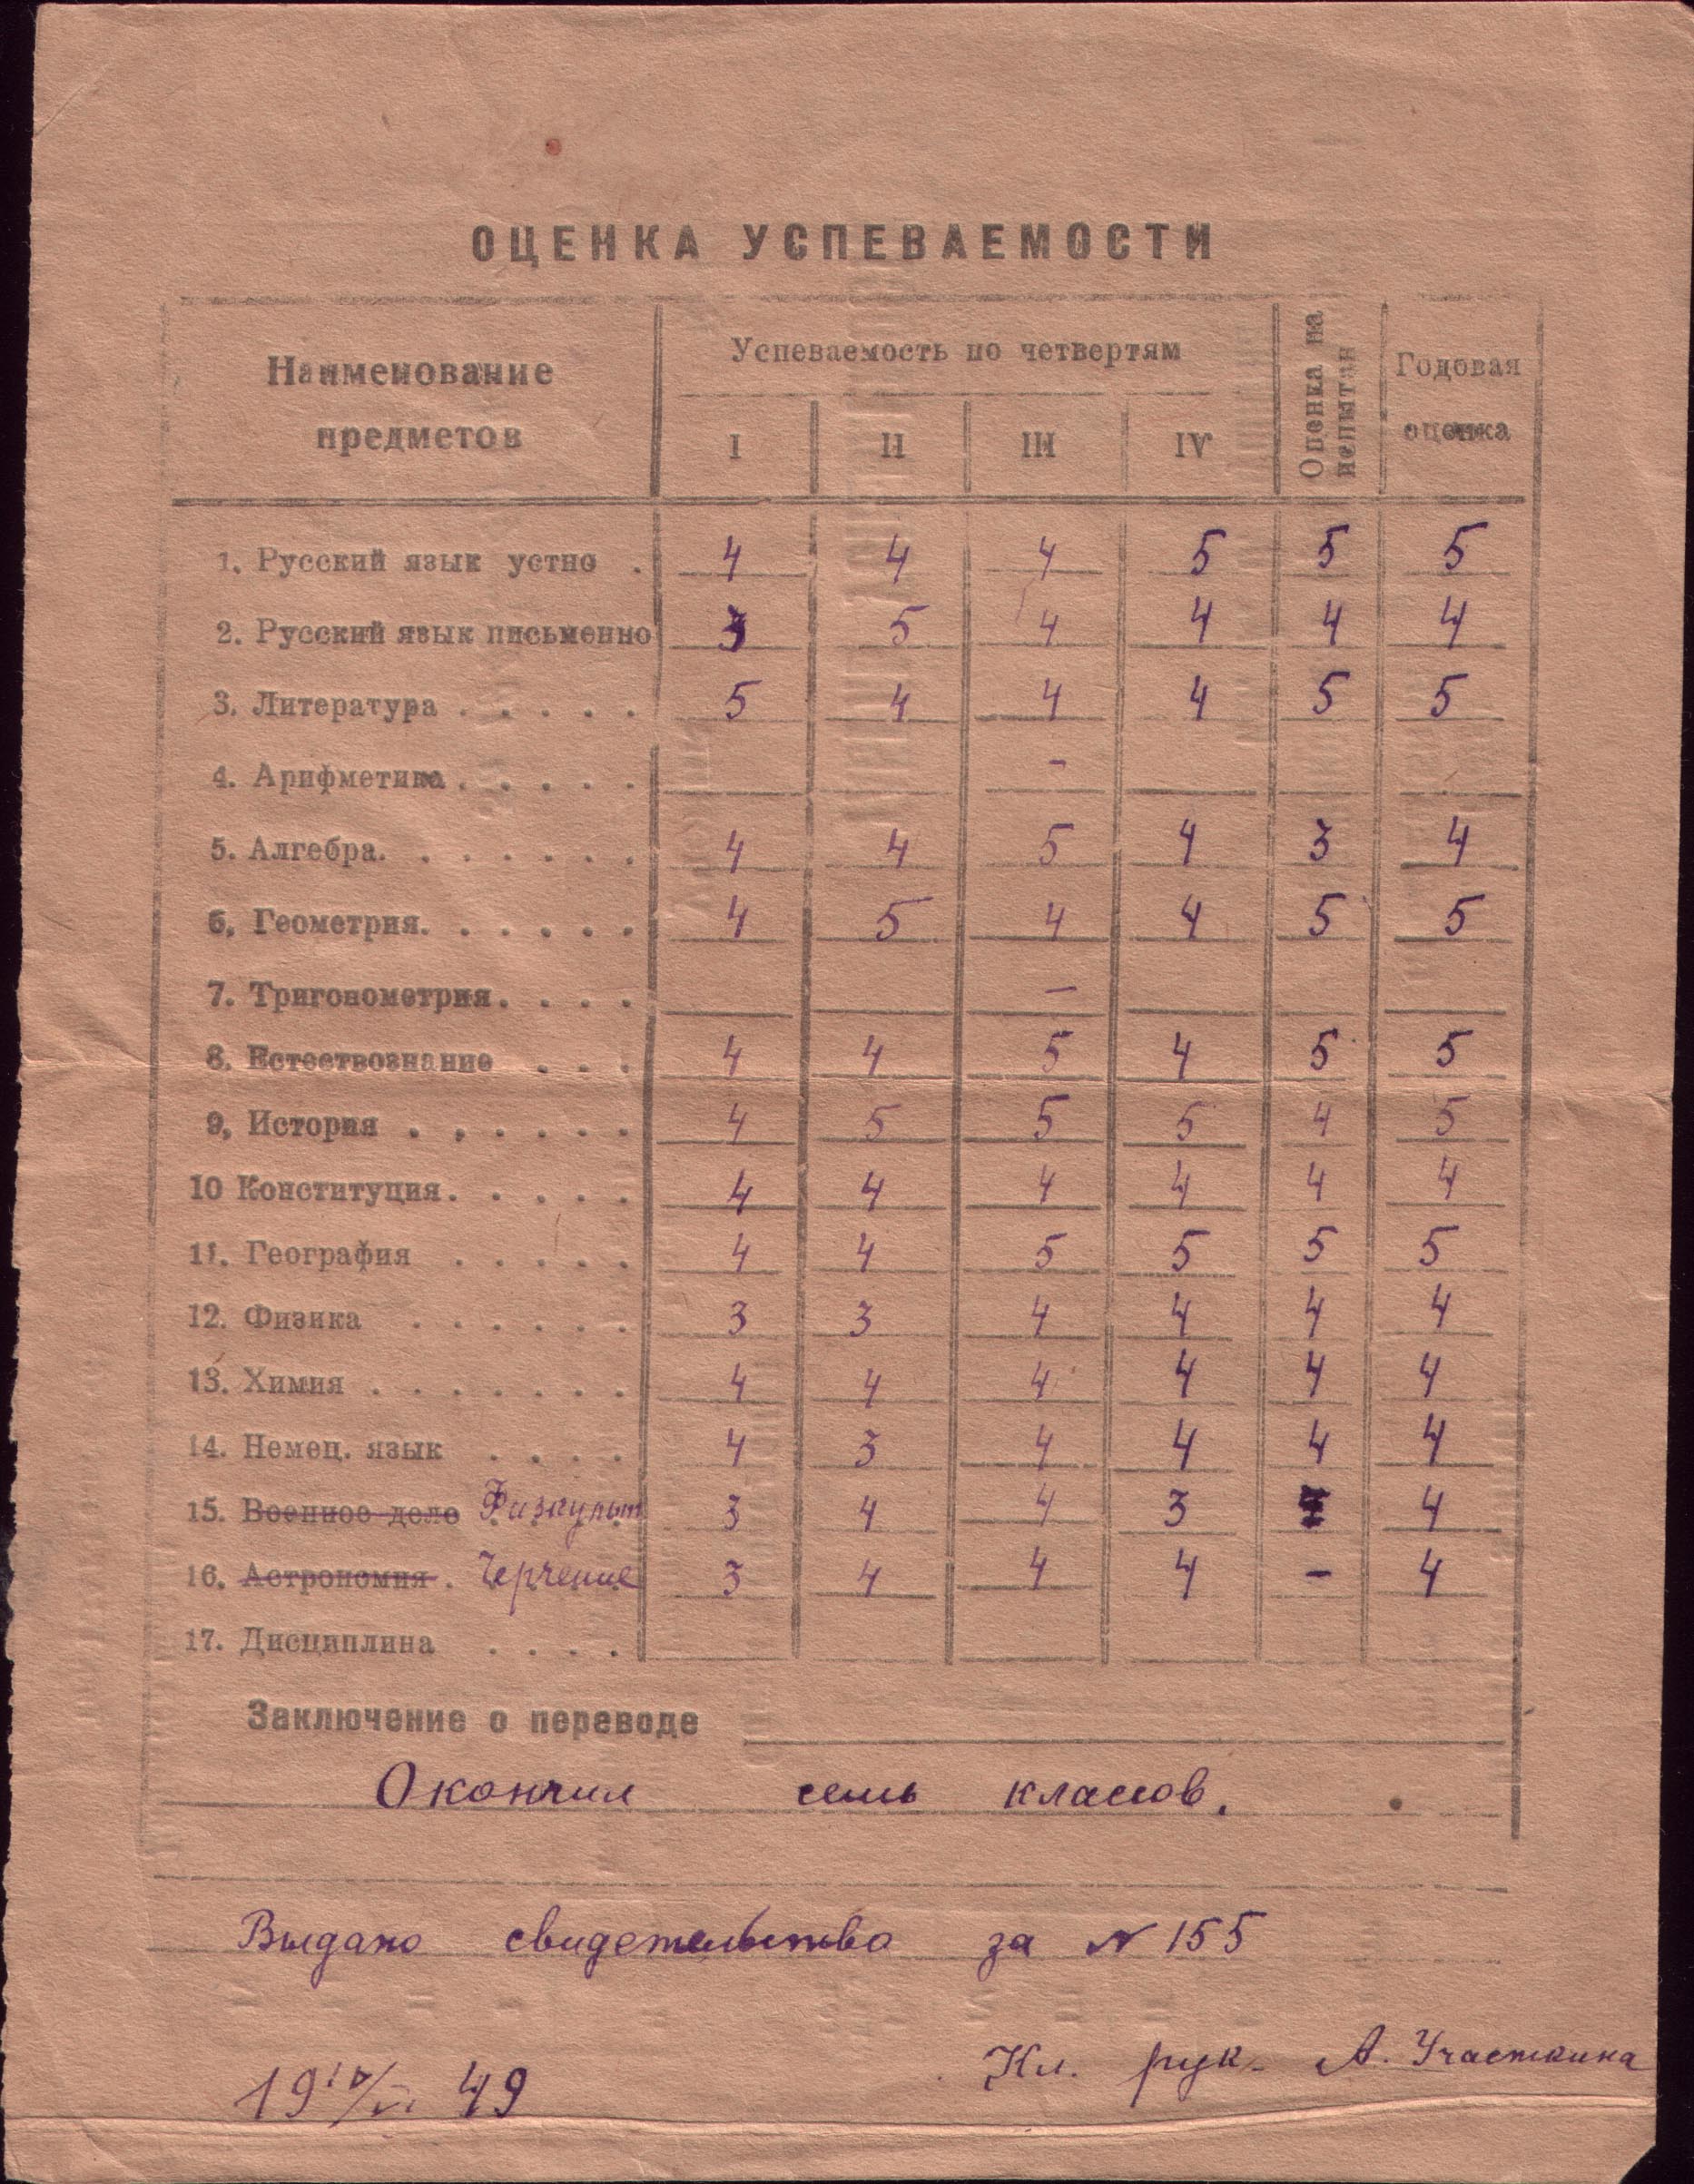 ОЦЕНКА УСПЕВАЕМОСТИ
Наименование предметов
Успеваемость по четвертям
I II III IV
Оценка на испытан
Годовая оценка
1. Русский язык устно . 4 4 4 5 5 5
2. Русский язык письменно 3 5 4 4 4 4
3. Литература . . . . . 5 4 4 4 5 5
4. Арифметика . . . . . -
5. Алгебра . . . . . . . 4 4 5 4 3 4
6. Геометрия . . . . . . 4 5 4 4 5 5
7. Тригонометрия . . . . -
8. Естествознание . . . 4 4 5 4 5 5
9. История . . . . . . 4 5 5 5 4 5
10 Конституция . . . . . 4 4 4 4 4 4
11. География . . . . . 4 4 5 5 5 5
12. Физика . . . . . . 3 3 4 4 4 4
13. Химия . . . . . . . 4 4 4 4 4 4
14. Немец. язык . . . . 4 3 4 4 4 4
15. Военное дело Физкульт 3 4 4 3 4
16. Астрономия . Черчение 3 4 4 4 - 4
17. Дисциплина . . . .
Заключение о переводе
Окончил семь классов.
Выдано свидетельство за № 155
Кл. рук. А. Участкина
49